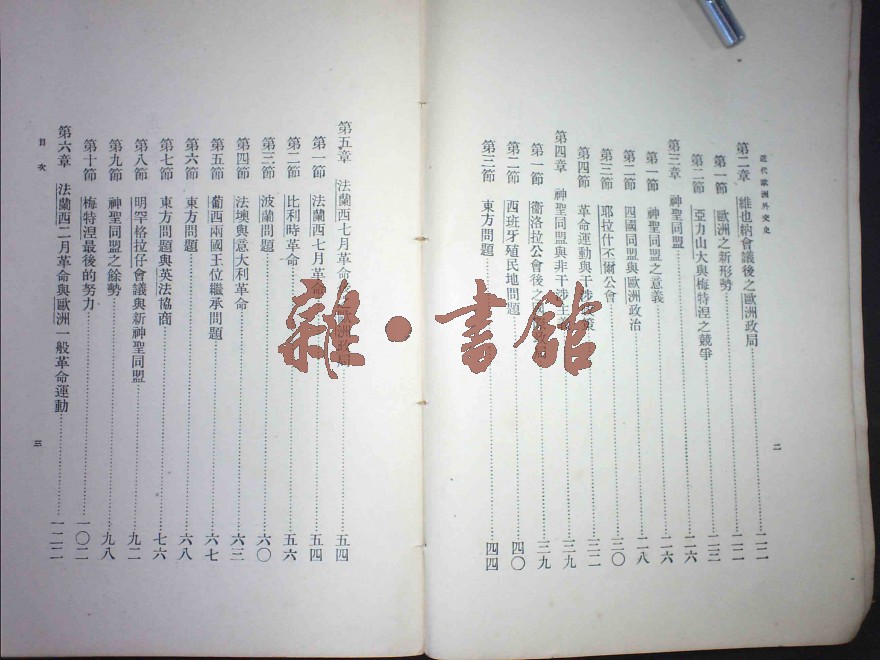 近代歐洲外交史
二
第二章 維也納會議後之歐洲政局 二二
第一節 歐洲之新形勢 二二
第二節 亞力山大與梅特涅之競爭 二三
第三章 神聖同盟 二六
第一節 神聖同盟之意義 二六
第二節 四國同盟與歐洲政治 二八
第三節 耶拉什不爾公會 三〇
第四節 革命運動與干涉政策 三二
第四章 神聖同盟與非干涉主 三九
第一節 衞洛拉公會後之國 三九
第二節 西班牙殖民地問題 四〇
第三節 東方問題 四四
第五章 法蘭西七月革命 洲政局 五四
第一節 法蘭西七月革命 五四
第二節 比利時革命 五六
第三節 波蘭問題 六〇
第四節 法墺與意大利革命 六三
第五節 葡西兩國王位繼承問題 六七
第六節 東方問題 六八
第七節 東方問題與英法協商 七六
第八節 明罕格拉仔會議與新神聖同盟 九二
第九節 神聖同盟之餘勢 九八
第十節 梅特涅最後的努力 一〇二
第六章 法蘭西二月革命與歐洲一般革命運動 一二二
目次
三
雜·書館